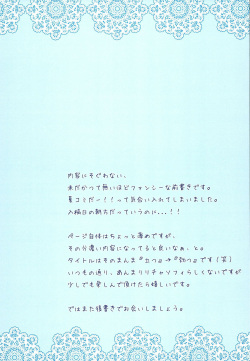 内容にそぐわない、
未だかつて無いほどファンシーな前書きです。
夏コミだー!!って気合い入れてしまいました。
入稿日の朝方だっていうのに...!!
ページ自体はちょっと薄めですが、
その分濃い内容になってると良いなぁ、と。
タイトルはそのまんま
です(笑)
いつもの通り、あんまりリチャソフィらしくないですが
少しでも楽しんで頂けたら嬉しいです。
ではまた後書きでお会いしましょう。